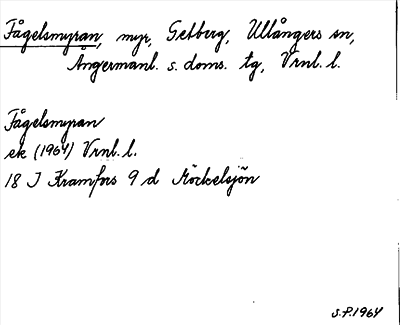 Fågelsmyran, myr, Getberg, Ullångers sn,
Ångermanl. s. doms. tg, Vrnl. l.
Fågelsmyran
ek (1964) Vrnl. l.
18 J Kramfors 9 d Möckelsjön
S.P. 1964